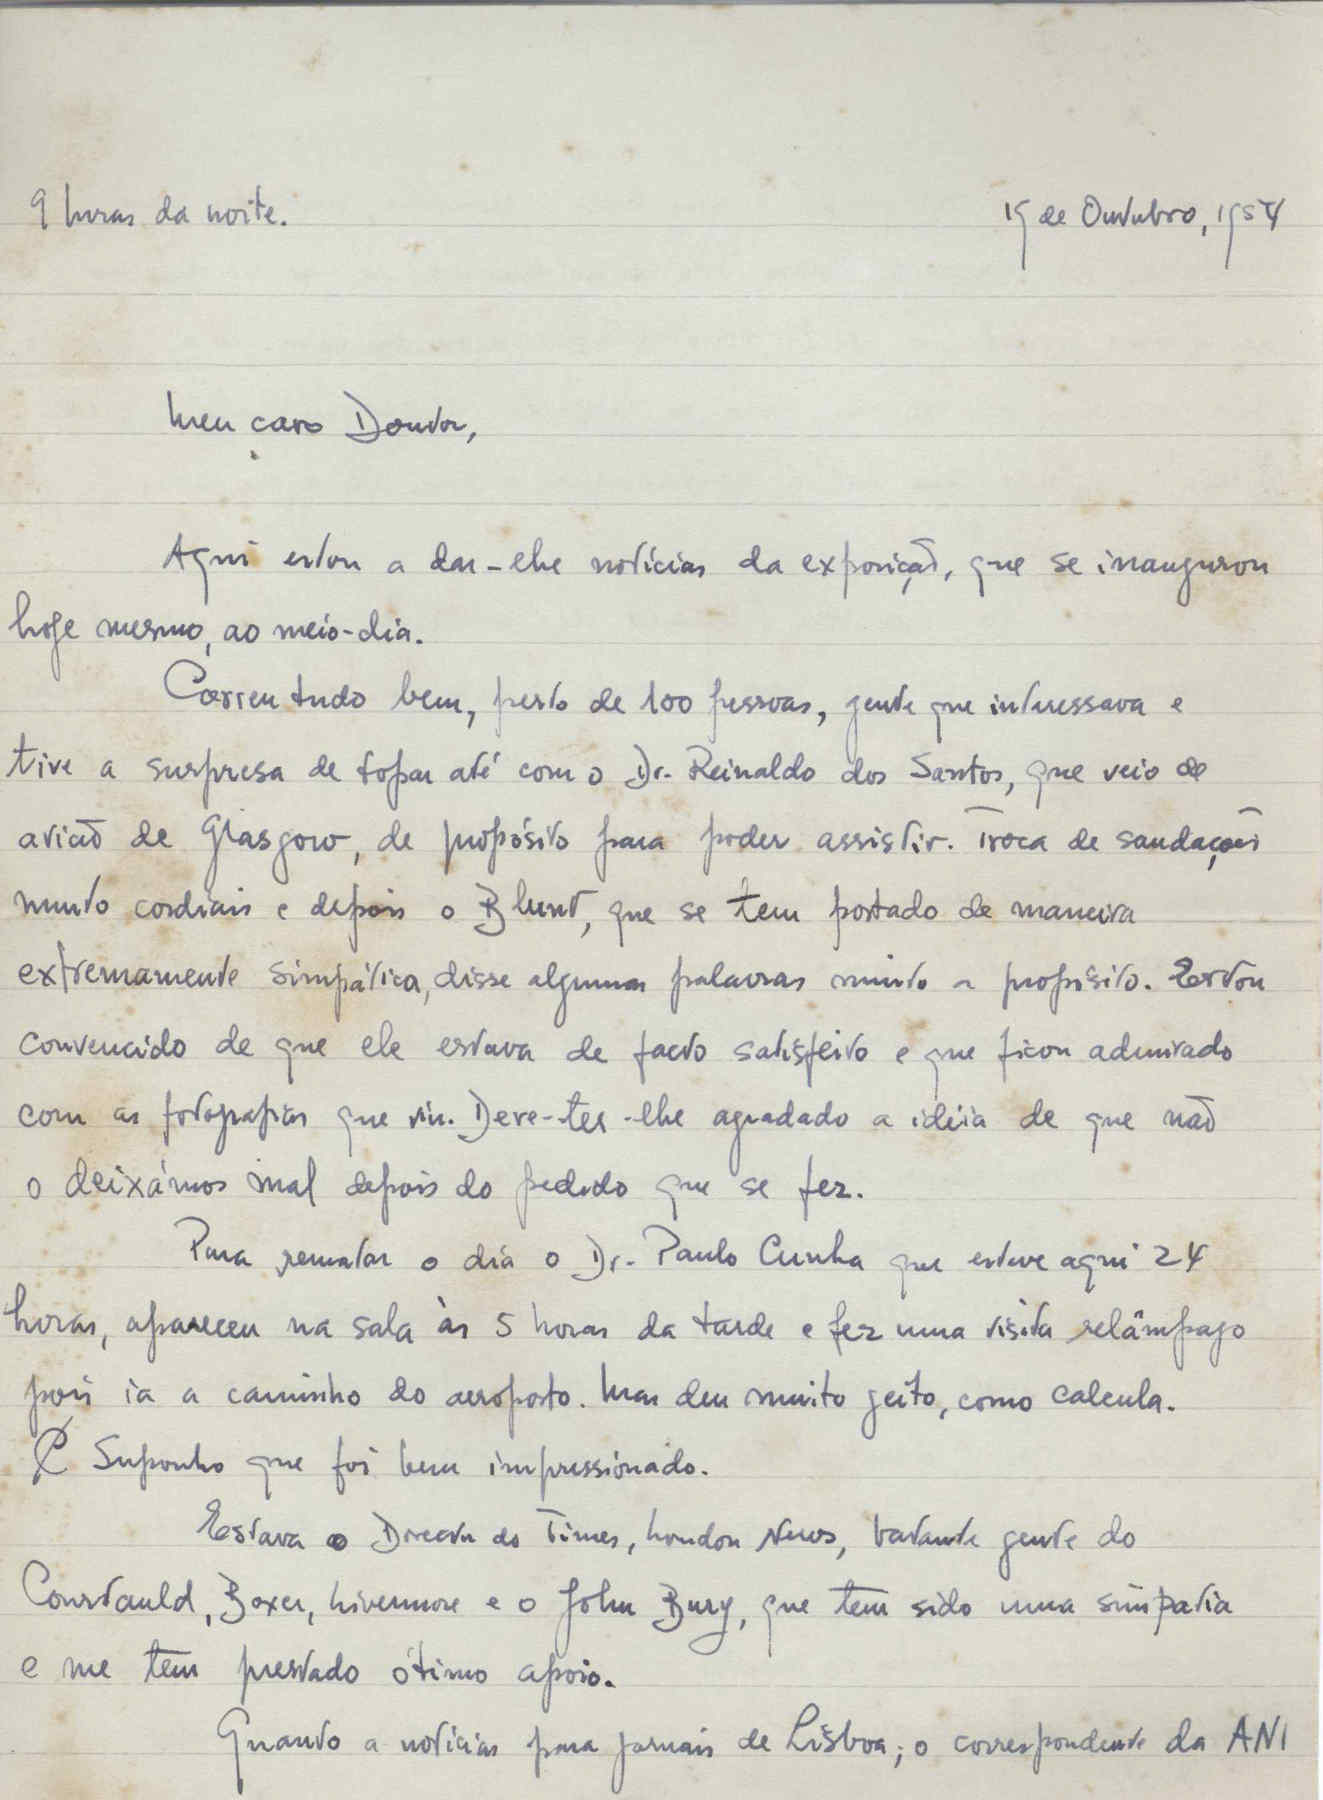 9 horas da noite.
19 de Outubro, 1954
Meu caro Doutor,
Aqui estou a dar-lhe notícias da exposição, que se inaugurou
hoje mesmo, ao meio-dia.
Correu tudo bem, perto de 100 pessoas, gente que interessava e
tive a surpresa de topar até com o Dr. Reinaldo dos Santos, que veio de
avião de Glasgow, de propósito para poder assistir. Troca de saudações
muito cordiais e depois o Blunt, que se tem portado de maneira
extremamente simpática, disse algumas palavras muito a propósito. Estou
convencido de que ele estava de facto satisfeito e que ficou admirado
com as fotografias que viu. Deve-ter-lhe agradado a idéia de que não
o deixámos mal depois do pedido que se fez.
Para rematar o dia o Dr. Paulo Cunha que esteve aqui 24
horas, apareceu na sala às 5 horas da tarde e fez uma visita relâmpago
pois ia a caminho do aeroporto. Mas deu muito geito, como calcula.
Suponho que foi bem impressionado.
Estava o Director do Times, London News, bastante gente do
Courtauld, Boxer, Livermore e o John Bury, que tem sido uma simpatia
e me tem prestado ótimo apoio.
Quanto a notícias para jornais de Lisboa; o correspondente da ANI